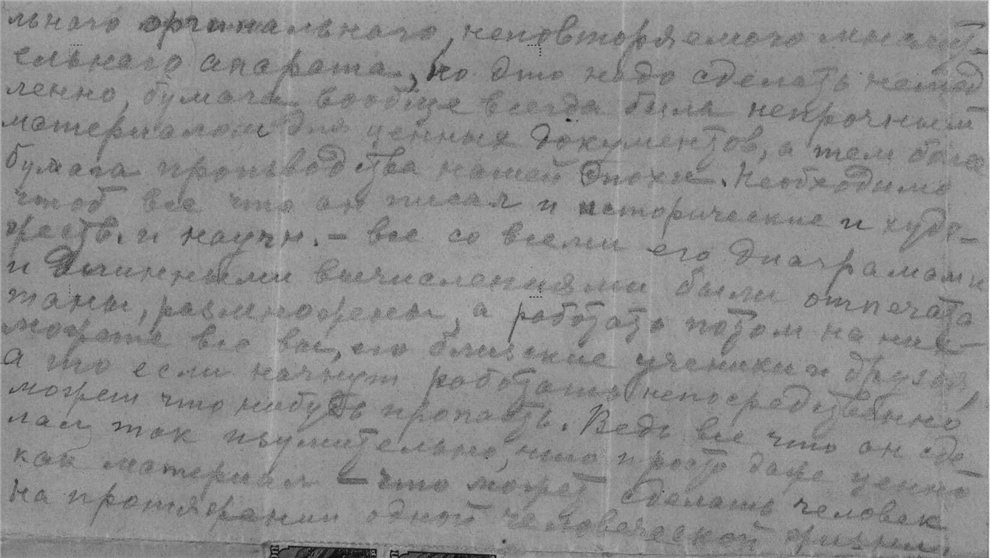 льного оргинального, неповторяемого мыслит-
ельнаго апарата, но это надо сделать немед
ленно, бумага вообще всегда была непрочным
материалом для ценных документов, а тем более
бумага производства нашей эпохи. Необходимо
чтоб все что он писал и исторические и худо-
жеств. и научн. – все со всеми его диаграмами
и длинными вычислениями были отпечата
таны, размножены, а работать потом на них
можете все вы, его близкие ученики и друзья,
а то если начнут работать непосредственно
может что нибудь пропасть. Ведь все что он сде
лал так изумительно, что просто даже ценно
как материал – что может сделать человек
на протяжении одной человеческой жизни.